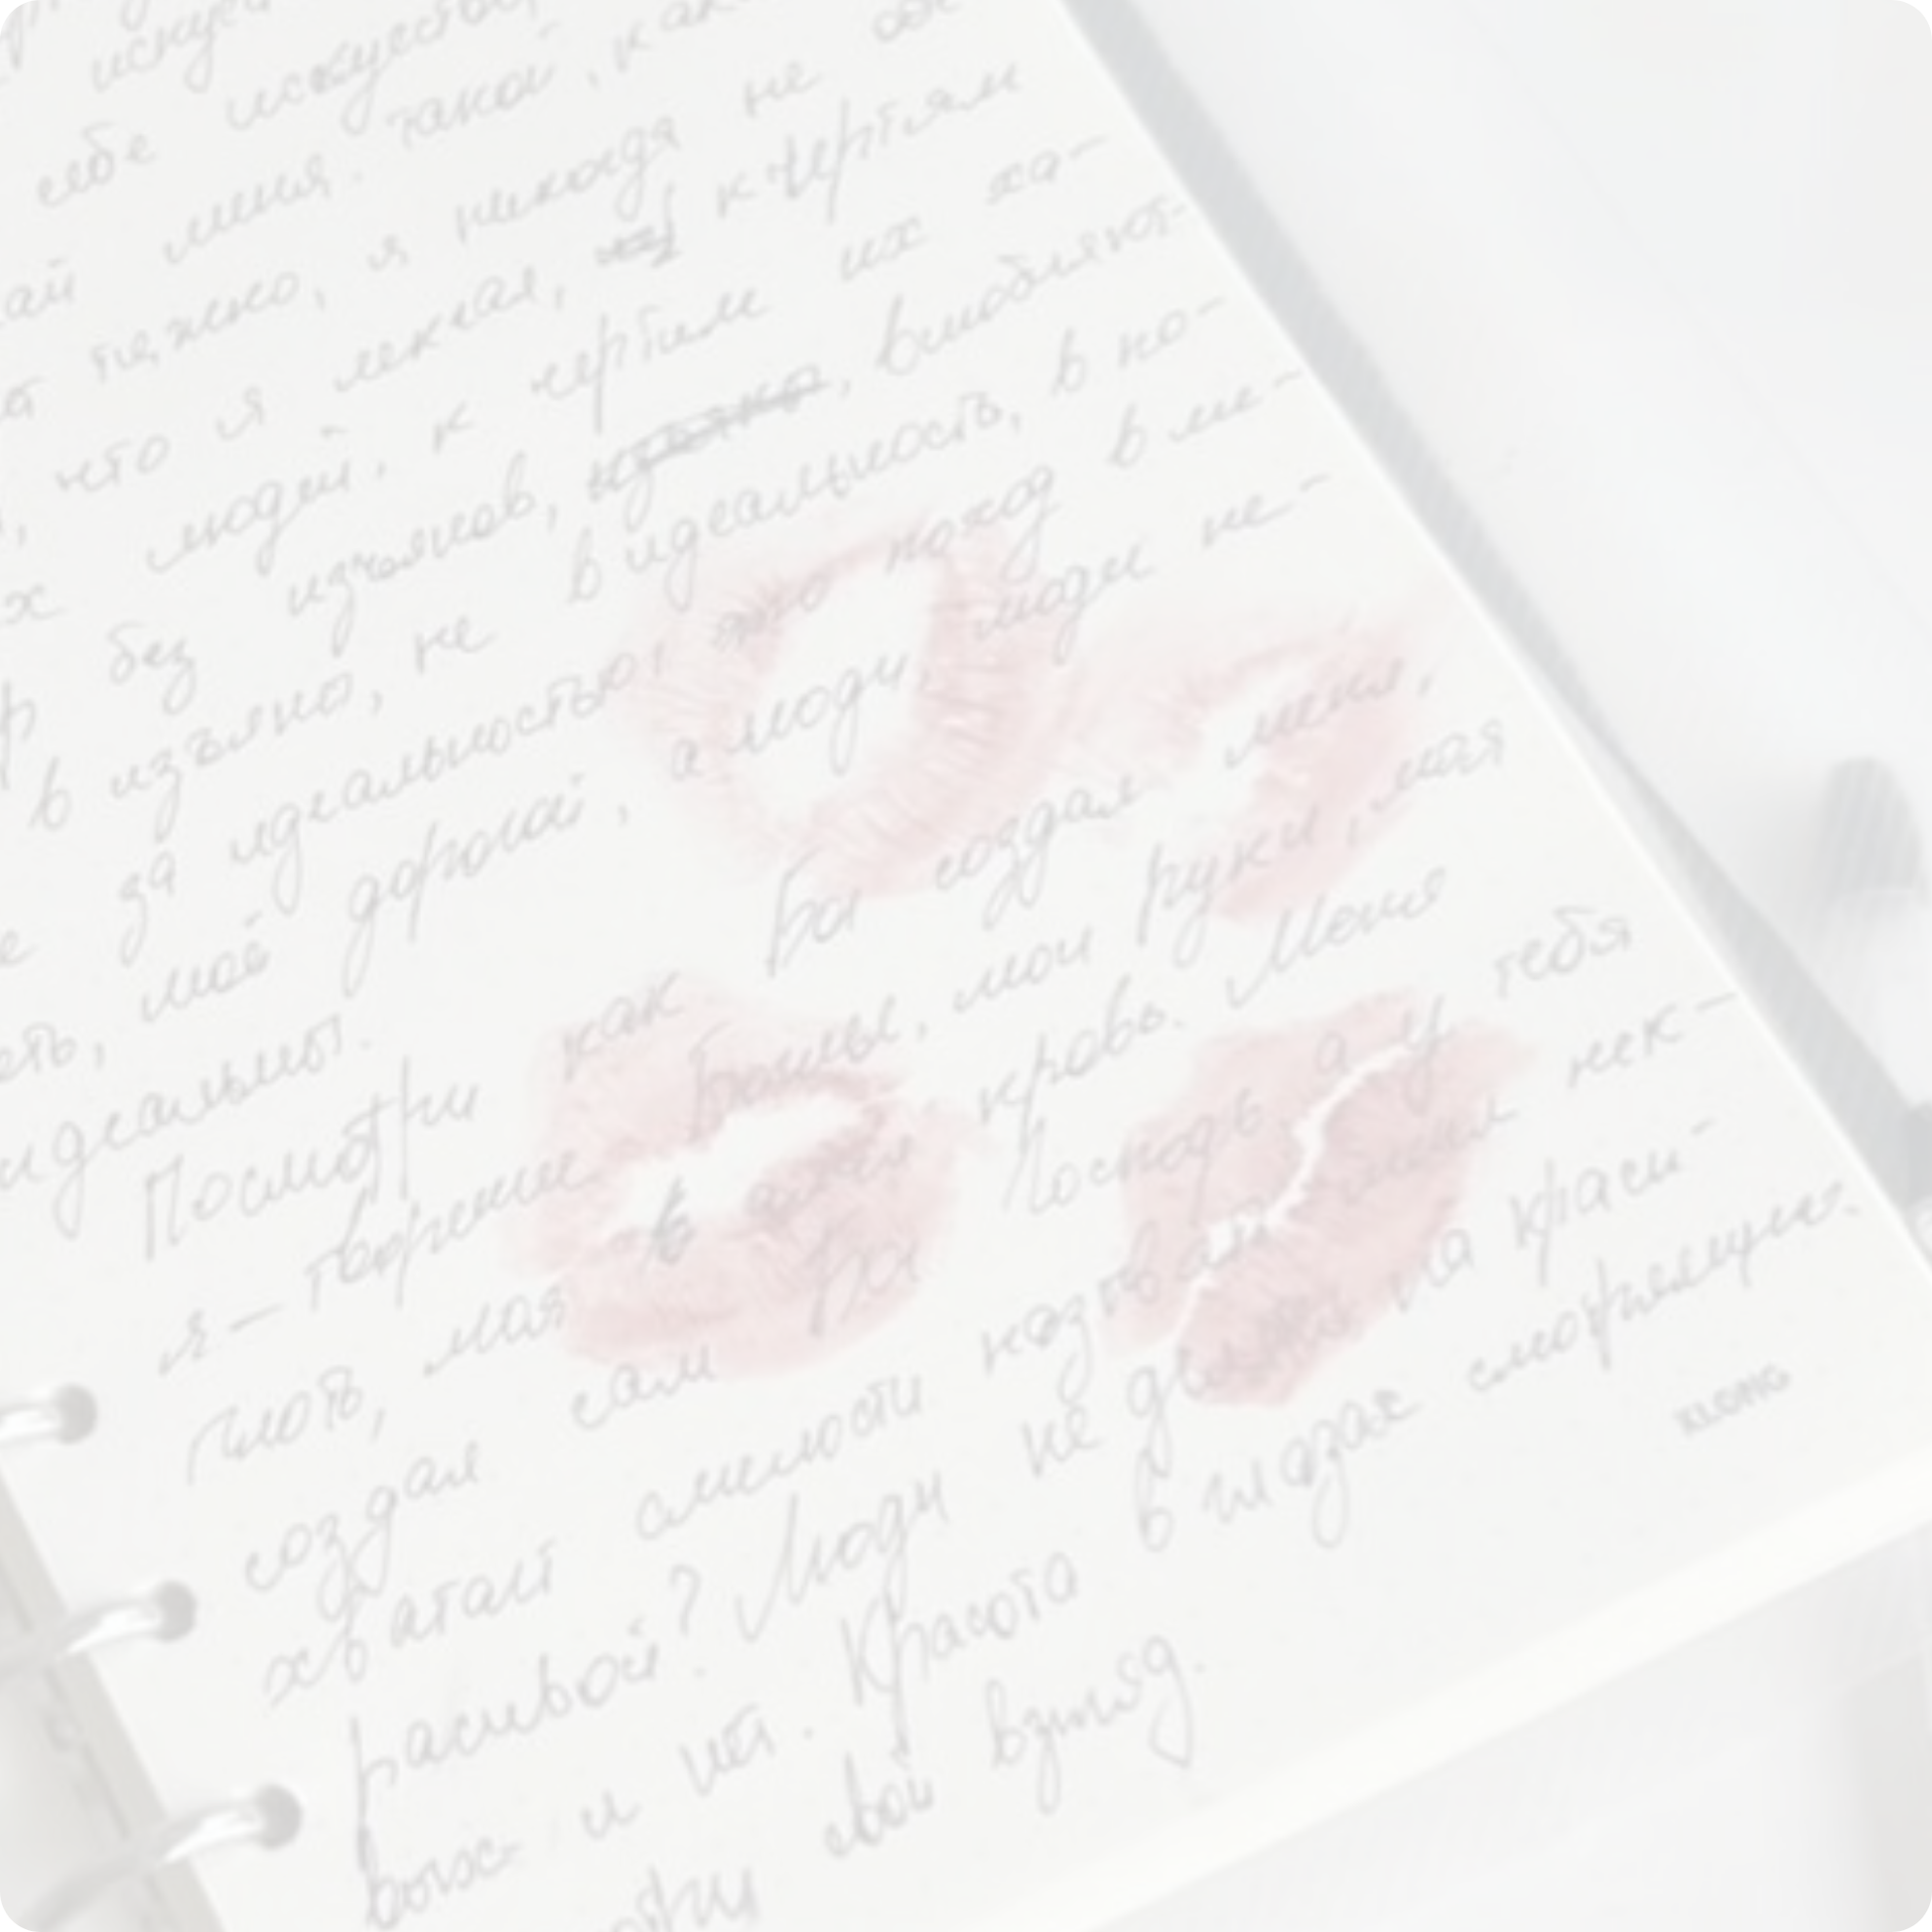 искус
себе искусство,
ай меня. такой, как
нежно, я никогда не
, что я мягкая, к чертям
х людей, к чертям их ха-
р без изъянов, влюбляют-
в изъяно, не в идеальность, в но-
е за идеальностью, поход в ме-
еть, моё дорогой, а люди, люди не-
идеальны.
Посмотри как Бог создал меня,
я — творение Богины, мои руки, моя
плоть, моя кровь. Меня
создал сам Бог Господь а у тебя
хватает смелости назвать меня нек-
расивой? Люди не делят на краси-
вых и нет. Красота в глазах смотрящего.
отри свой взгляд.
KLOMG